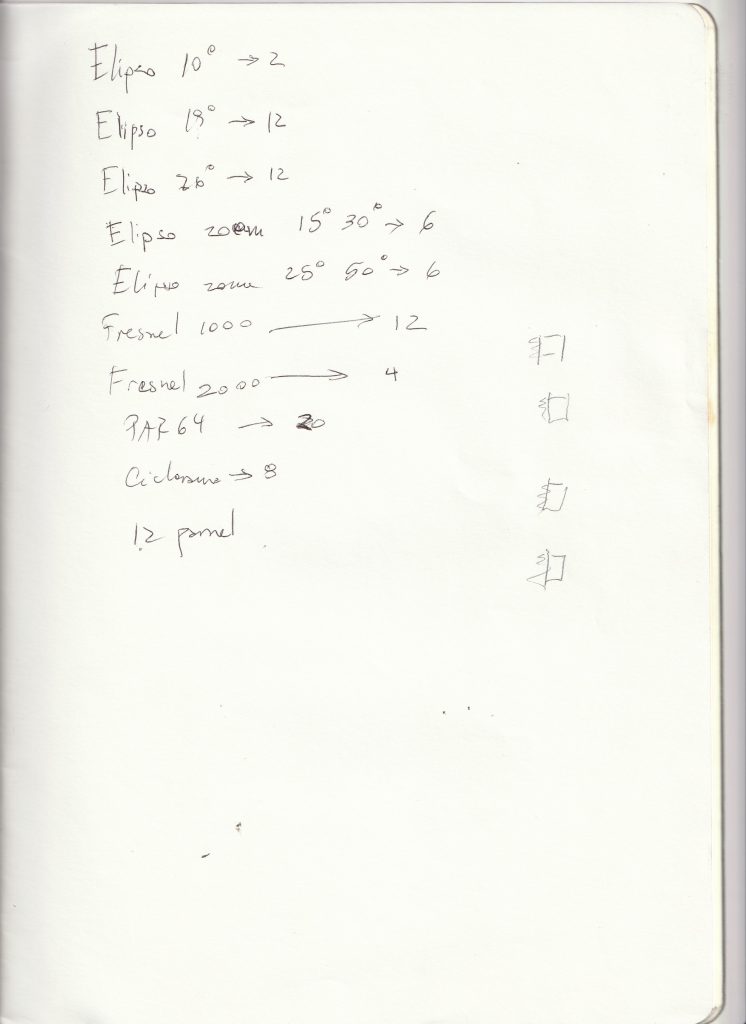 Elipso 10° → 2
Elipso 19° → 12
Elipso 26° → 12
Elipso zoom 15° 30° → 6
Elipso zoom 25° 50° → 6
Fresnel 1000 → 12
Fresnel 2000 → 4
PAR 64 → 20
Ciclorama → 8
12 parnel